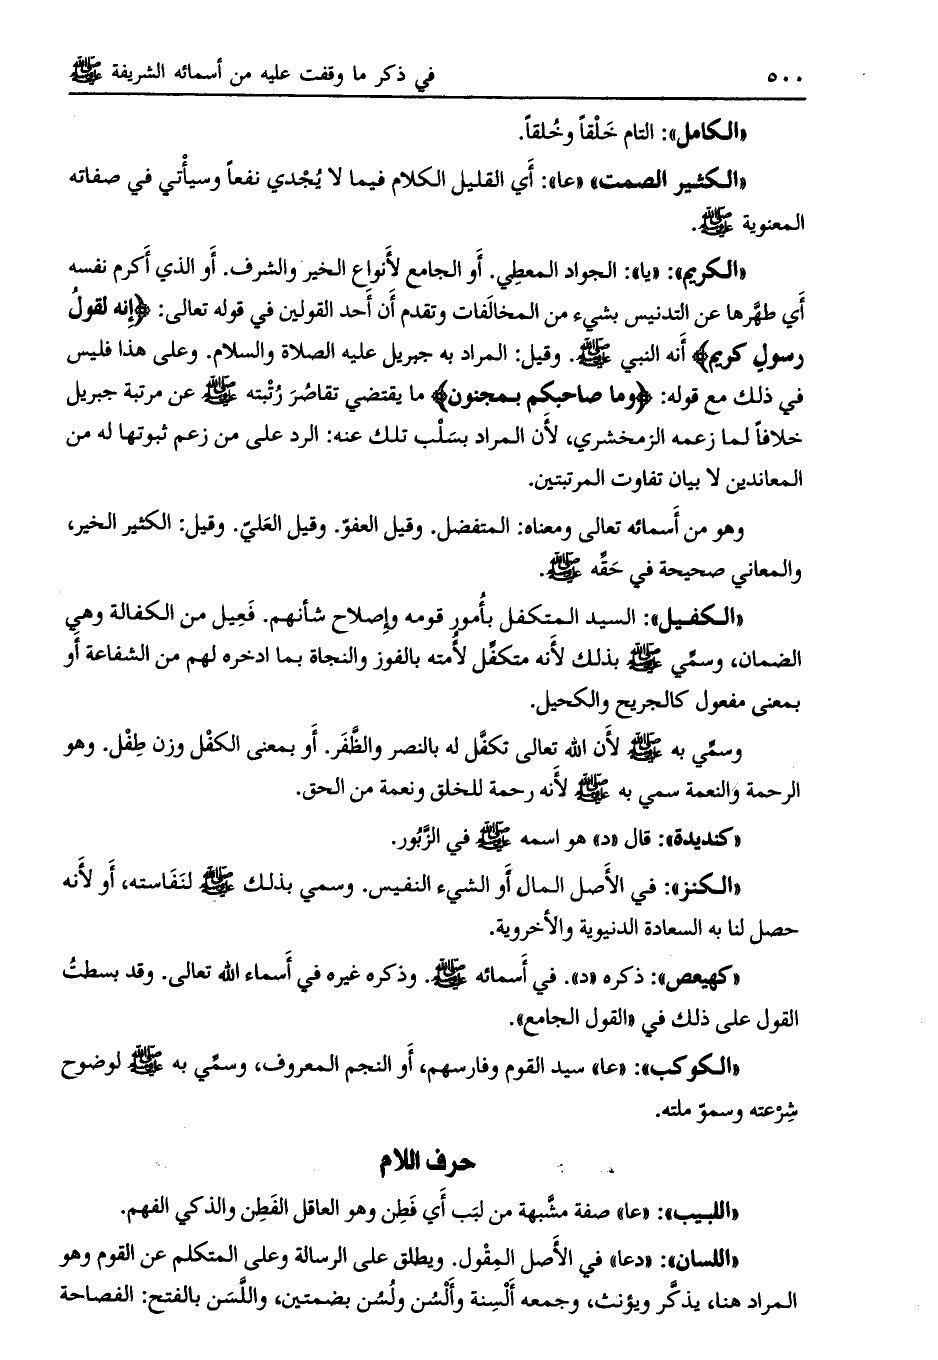 ٥٠٠ في ذكر ما وقفت عليه من أسمائه الشريفة ﷺ
«الكامل»: التام خَلْقاً وخُلقاً.
«الكثير الصمت» «عا»: أَي القليل الكلام فيما لا يُجْدي نفعاً وسيأْتي في صفاته
المعنوية ﷺ.
«الكريم»: «يا»: الجواد المعطِي. أَو الجامع لأَنواع الخير والشرف. أَو الذي أَكرم نفسه
أَي طهَّرها عن التدنيس بشيء من المخالَفات وتقدم أَن أَحد القولين في قوله تعالى: ﴿إِنه لقولُ
رسولٍ كريم﴾ أَنه النبي ﷺ. وقيل: المراد به جبريل عليه الصلاة والسلام. وعلى هذا فليس
في ذلك مع قوله: ﴿وما صاحبكم بمجنون﴾ ما يقتضي تقاصُرَ رُتْبته ﷺ عن مرتبة جبريل
خلافاً لما زعمه الزمخشري، لأَن المراد بسَلْب تلك عنه: الرد على من زعم ثبوتها له من
المعاندين لا بيان تفاوت المرتبتين.
وهو من أَسمائه تعالى ومعناه: المتفضل. وقيل العفوّ. وقيل العَليّ. وقيل: الكثير الخير،
والمعاني صحيحة في حَقِّه ﷺ.
«الكفيل»: السيد المتكفل بأُمور قومه وإِصلاح شأنهم. فَعِيل من الكفالة وهي
الضمان، وسمِّي ﷺ بذلك لأَنه متكفِّل لأُمته بالفوز والنجاة بما ادخره لهم من الشفاعة أَو
بمعنى مفعول كالجريح والكحيل.
وسمِّي به ﷺ لأَن الله تعالى تكفَّل له بالنصر والظَّفَر. أَو بمعنى الكفْل وزن طِفْل. وهو
الرحمة والنعمة سمي به ﷺ لأَنه رحمة للخلق ونعمة من الحق.
«كنديدة»: قال «د» هو اسمه ﷺ في الزَّبُور.
«الكنز»: في الأَصل المال أَو الشيء النفيس. وسمي بذلك ﷺ لنَفَاسته، أَو لأَنه
حصل لنا به السعادة الدنيوية والأخروية.
«كهيعص»: ذكره «د». في أَسمائه ﷺ. وذكره غيره في أَسماء الله تعالى. وقد بسطتُ
القول على ذلك في «القول الجامع».
«الكوكب»: «عا» سيد القوم وفارسهم، أَو النجم المعروف، وسمِّي به ﷺ لوضوح
شِرْعته وسموّ ملته.
حرف اللام
«اللبيب»: «عا» صفة مشَّبهة من لبَب أَي فَطِن وهو العاقل الفَطِن والذكي الفهم.
«اللسان»: «دعا» في الأَصل المِقْول. ويطلق على الرسالة وعلى المتكلم عن القوم وهو
المراد هنا، يذكَّر ويؤنث، وجمعه أَلْسِنة وأَلْسُن ولُسُن بضمتين، واللَّسَن بالفتح: الفصاحة